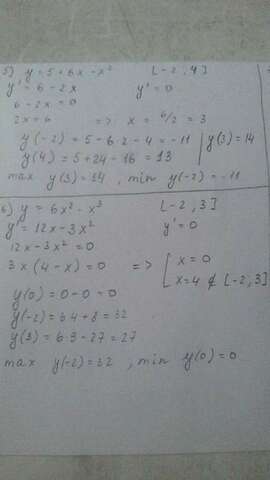 5) y = 5 + 6x - x² [-2, 4]
y' = 6 - 2x y' = 0
6 - 2x = 0
2x = 6 => x = 6/2 = 3
y(-2) = 5 - 6·2 - 4 = -11 | y(3) = 14
y(4) = 5 + 24 - 16 = 13
max y(3) = 14, min y(-2) = -11
6) y = 6x² - x³ [-2, 3]
y' = 12x - 3x² y' = 0
12x - 3x² = 0
3x(4 - x) = 0 => [ x = 0
x = 4 ∉ [-2, 3]
y(0) = 0 - 0 = 0
y(-2) = 6·4 + 8 = 32
y(3) = 6·9 - 27 = 27
max y(-2) = 32, min y(0) = 0